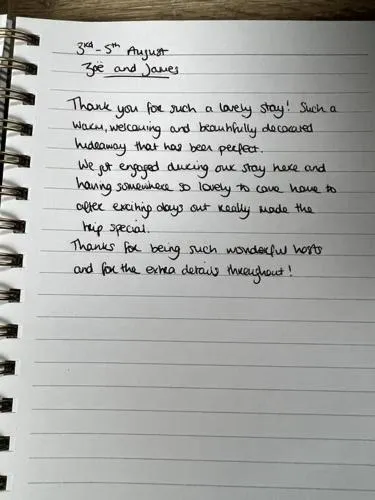 3rd - 5th August
Zoë and James
Thank you for such a lovely stay! Such a
warm, welcoming and beautifully decorated
hideaway that has been perfect.
We got engaged during our stay here and
having somewhere so lovely to come home to
after exciting days out really made the
trip special.
Thanks for being such wonderful hosts
and for the extra details throughout!